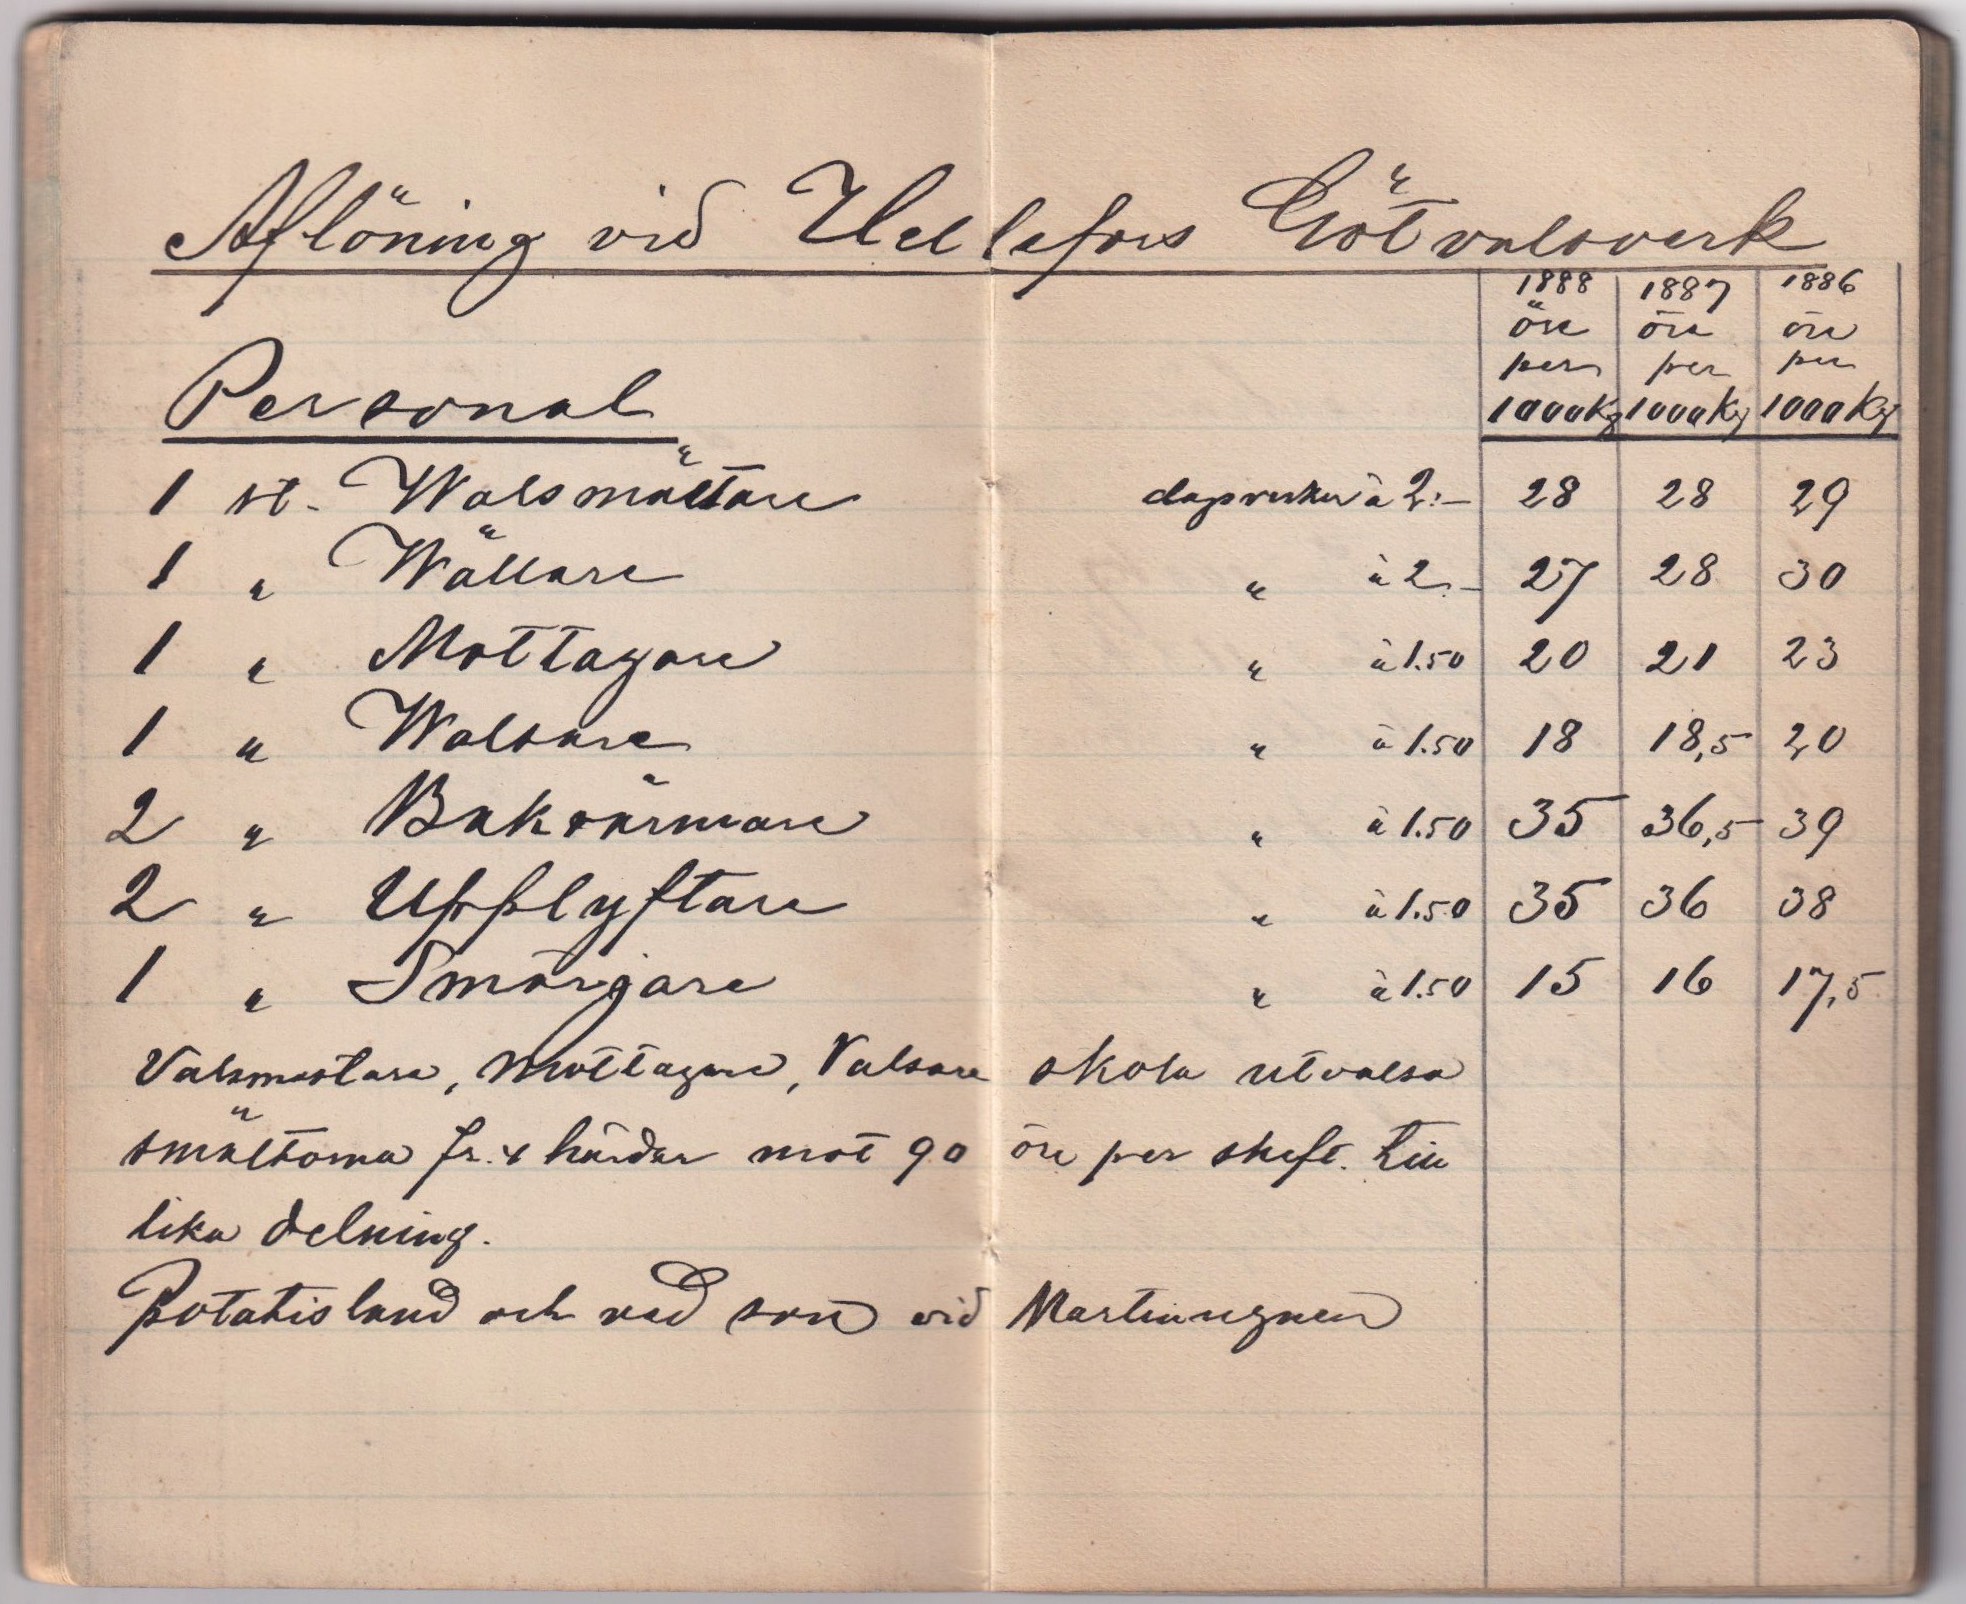 Aflöning vid Uddefors Götvalsverk
1888 1887 1886
öre öre öre
per per per
Personal 1000Kg 1000Kg 1000Kg
1 st. Walsmästare dagsverken à 2:- 28 28 29
1 " Wällare " à 2:- 27 28 30
1 " Mottagare " à 1.50 20 21 23
1 " Walsare " à 1.50 18 18,5 20
2 " Bakvärmare " à 1.50 35 36,5 39
2 " Upplyftare " à 1.50 35 36 38
1 " Smörjare " à 1.50 15 16 17,5
Valsmästare, Mottagare, Valsare skola utvalsa
smältorna fr. härdar mot 90 öre per skift. Till
lika delning.
Potatisland och ved som vid Martinugnen